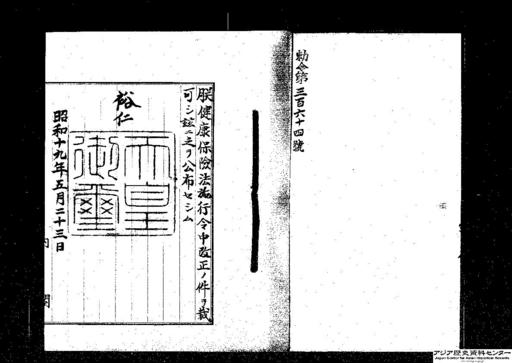 勅令第三百六十四號
朕健康保險法施行令中改正ノ件ヲ裁
可シ茲ニ之ヲ公布セシム
裕仁
天皇
御璽
昭和十九年五月二十三日
内閣
アジア歴史資料センター
Japan Center for Asian Historical Records